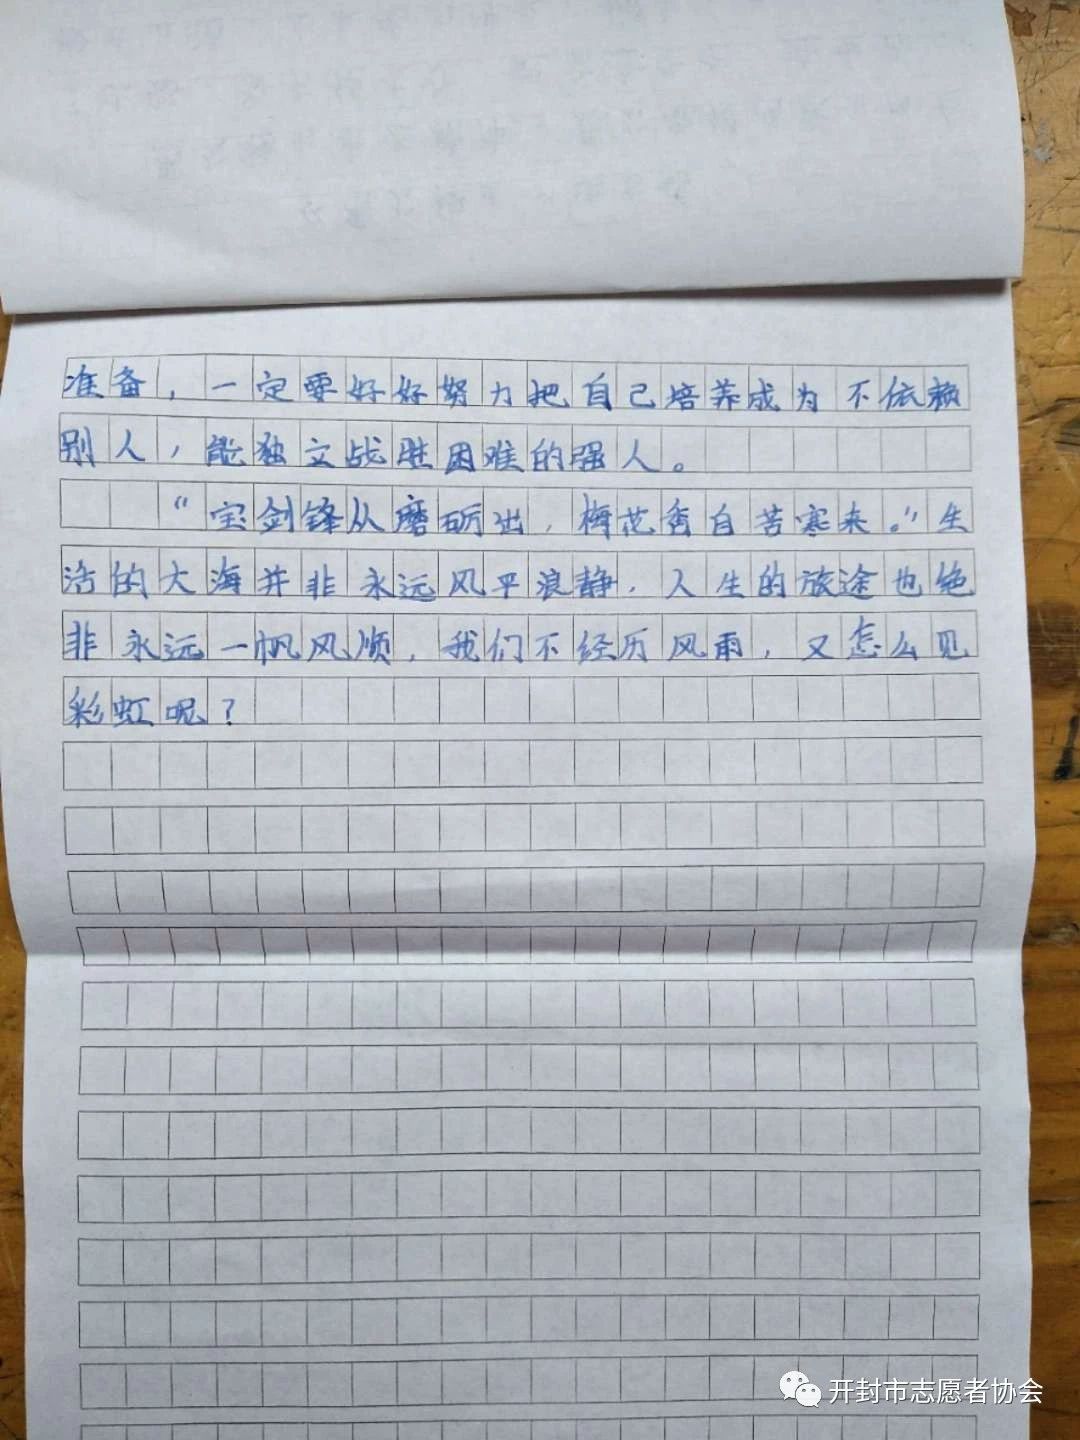 准备，一定要好好努力把自己培养成为不依赖
别人，能独立战胜困难的强人。
“宝剑锋从磨砺出，梅花香自苦寒来。”生
活的大海并非永远风平浪静，人生的旅途也绝
非永远一帆风顺，我们不经历风雨，又怎么见
彩虹呢？
开封市志愿者协会